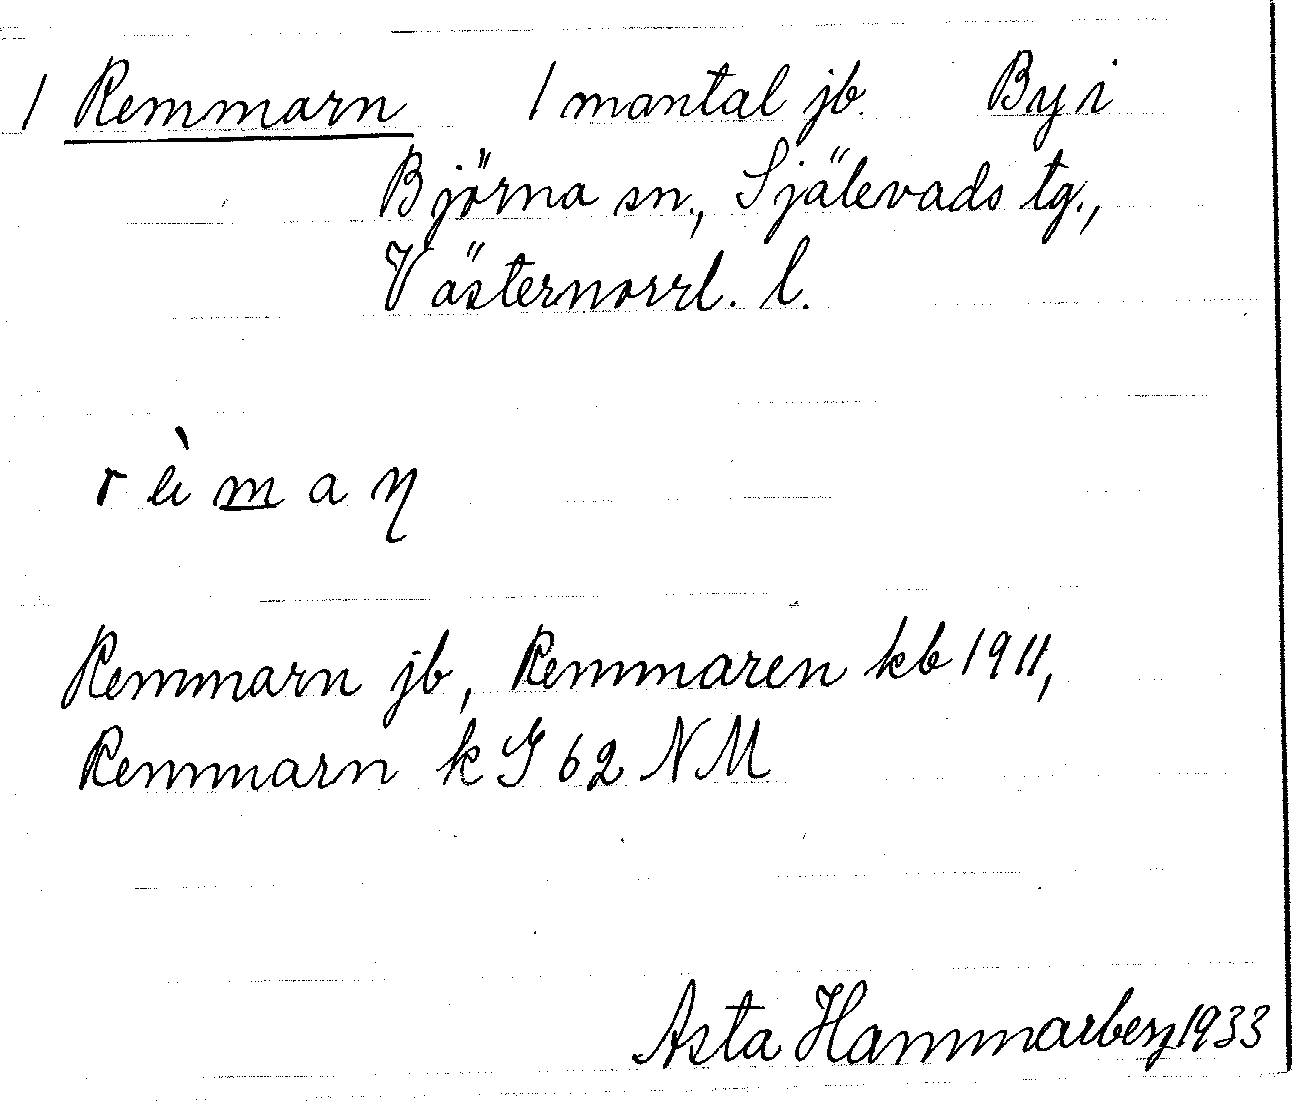 1 Remmarn 1 mantal jb. By i
Björna sn., Själevads tg.,
Västernorrl. l.
r m a
Remmarn jb, Remmaren kb 1911,
Remmarn k G 62 NM
Asta Hammarberg 1933